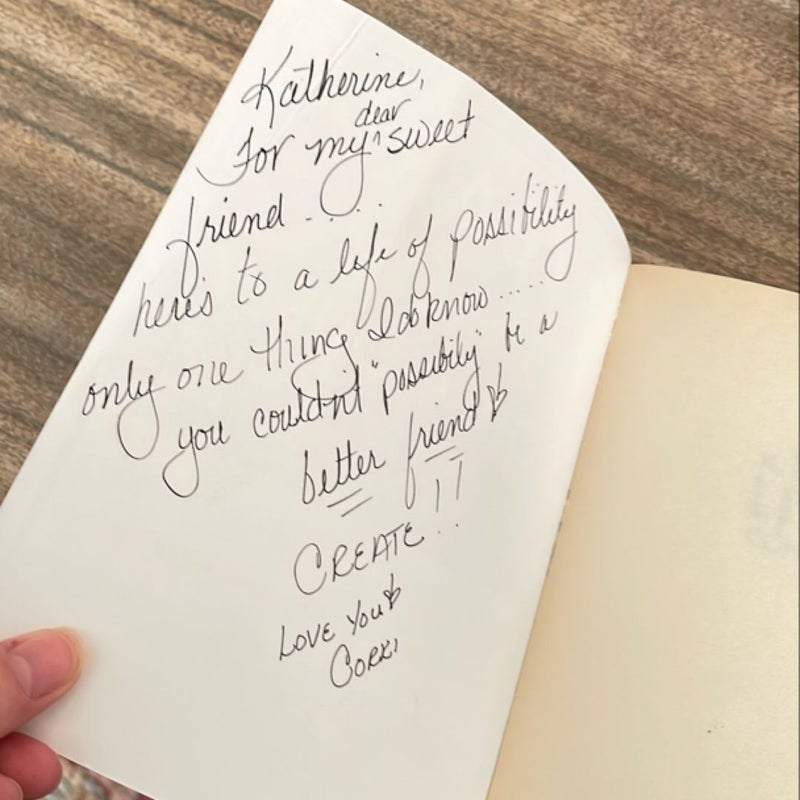 Katherine,
dear
For my ^ sweet
friend . . . .
here's to a life of possibility
only one thing I do know .....
you couldn't "possibily" be a
better friend ♡
CREATE!!
LOVE YOU ♡
CORKI